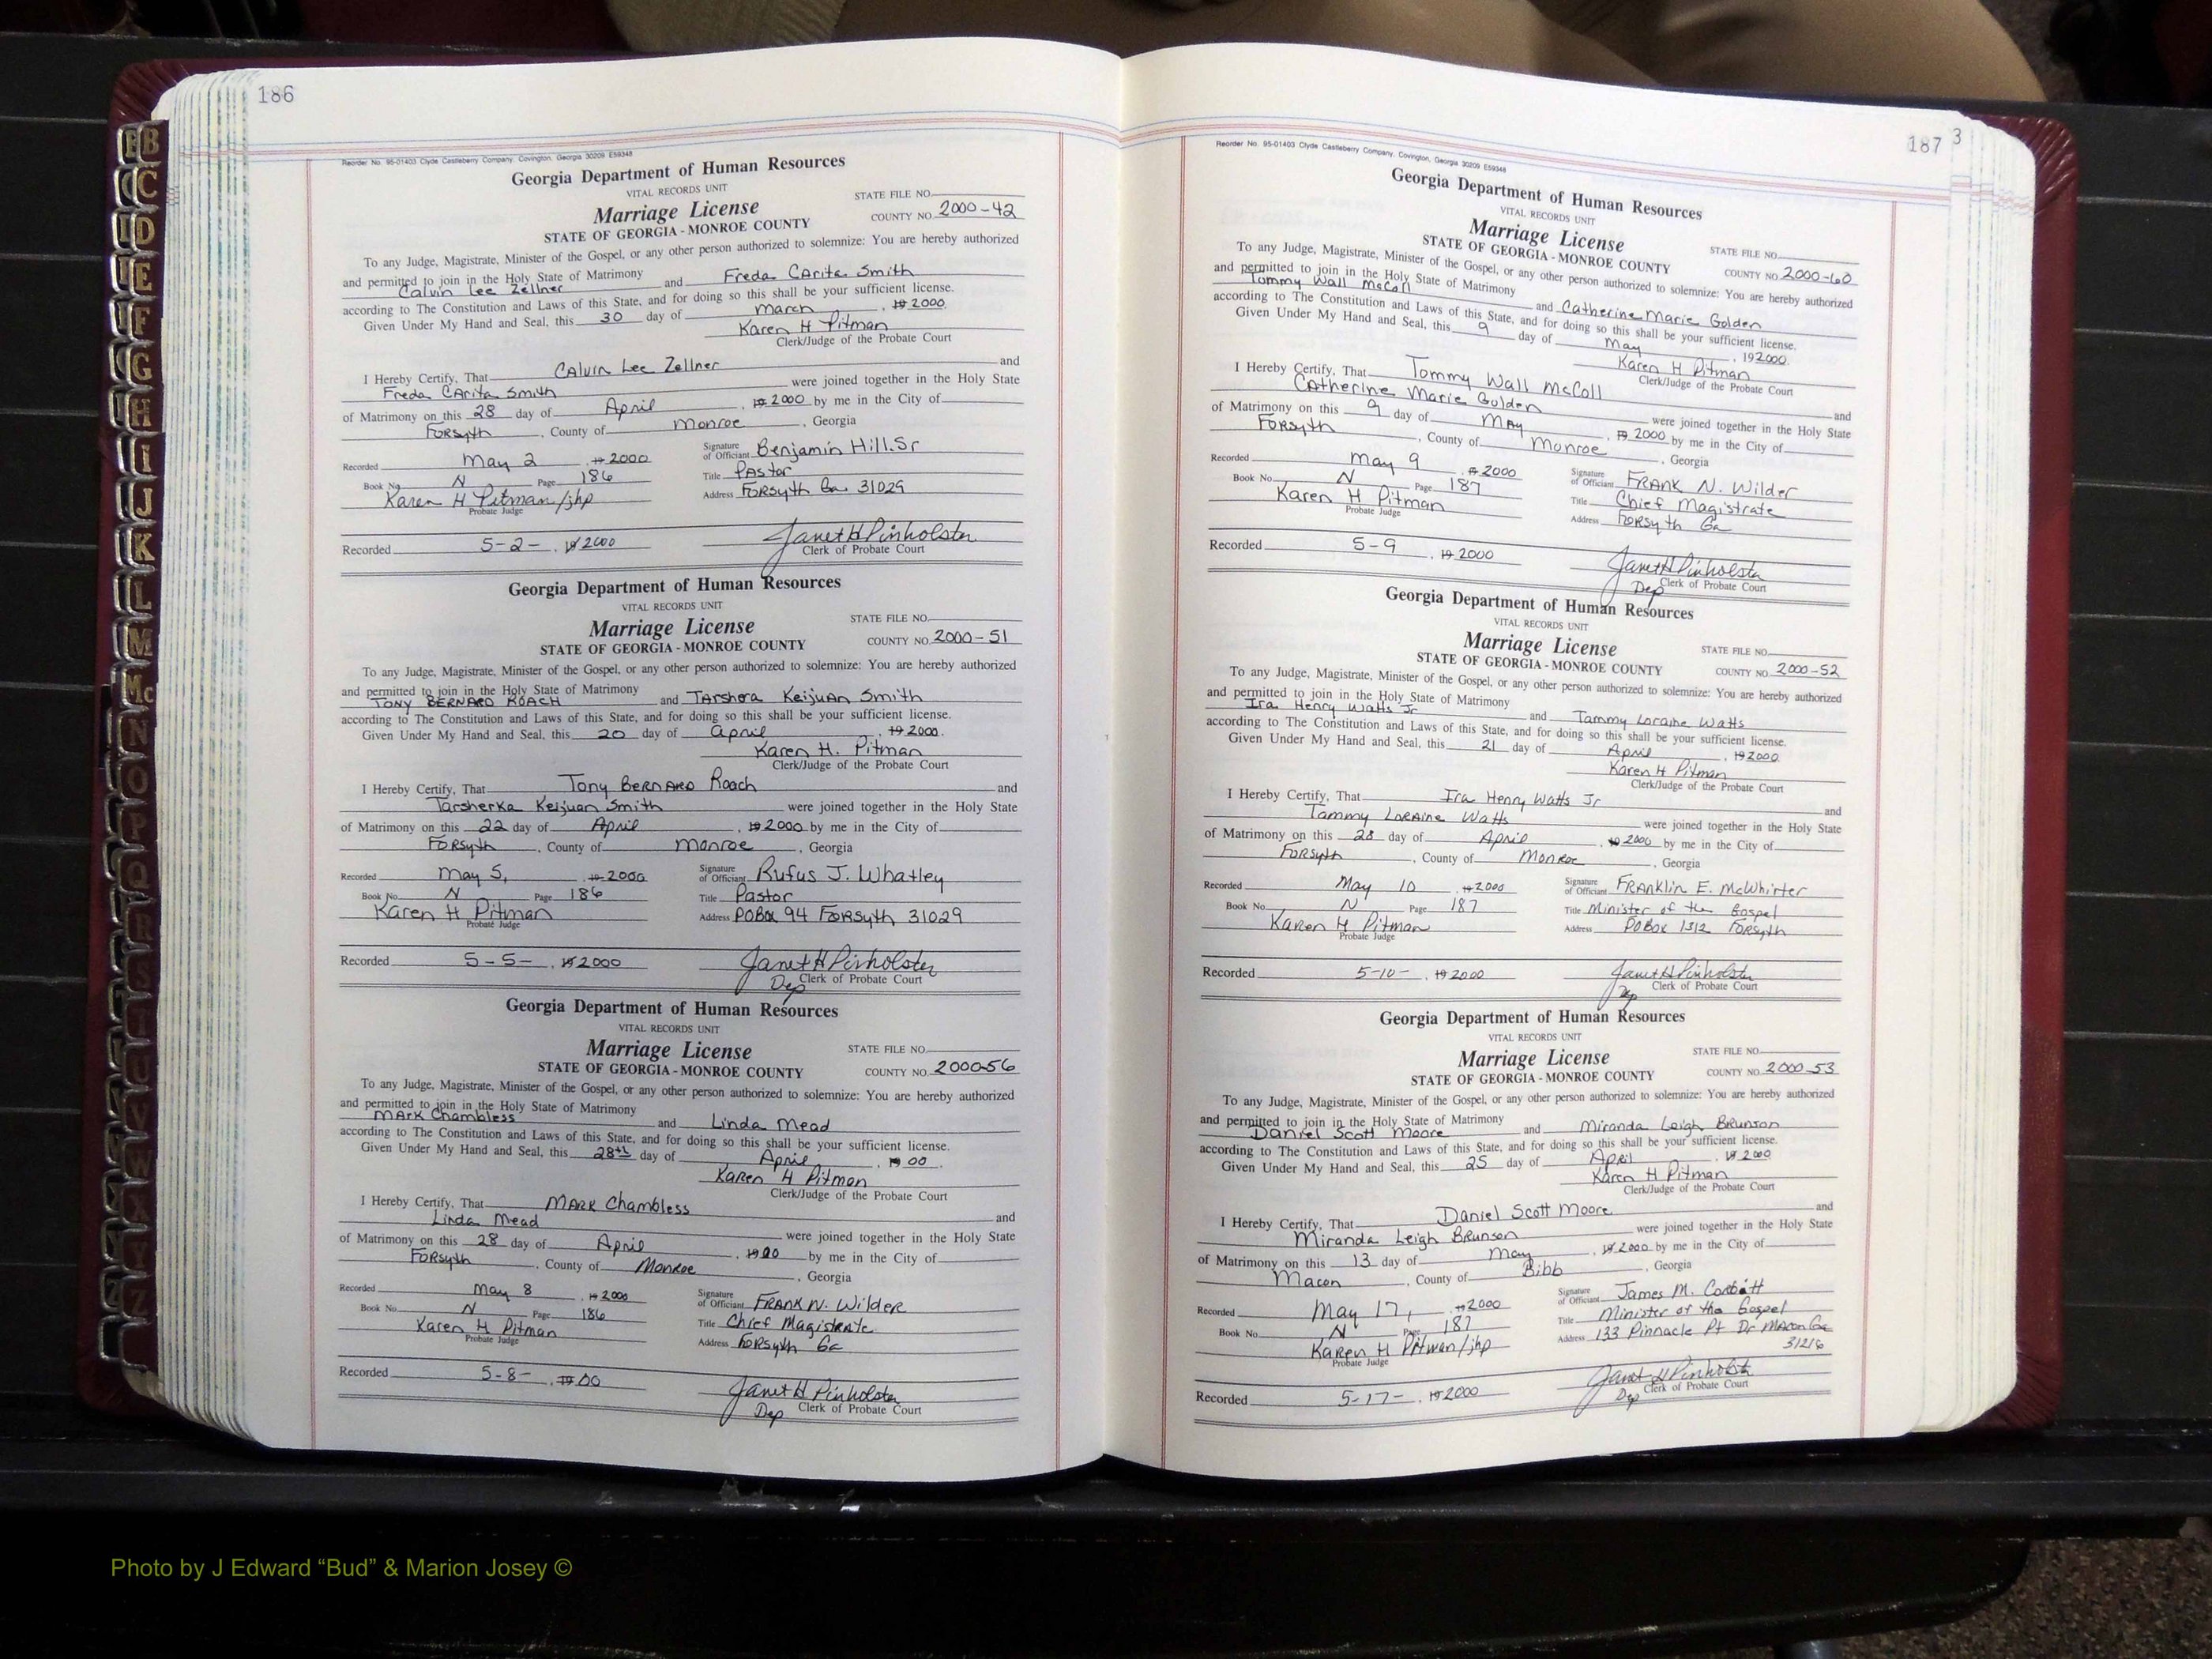 186
Reorder No. 95-01403 Clyde Castleberry Company, Covington, Georgia 30209 E59348
Georgia Department of Human Resources
VITAL RECORDS UNIT
STATE FILE NO.
Marriage License
COUNTY NO. 2000-42
STATE OF GEORGIA - MONROE COUNTY
To any Judge, Magistrate, Minister of the Gospel, or any other person authorized to solemnize: You are hereby authorized
and permitted to join in the Holy State of Matrimony
Calvin Lee Zellner and Freda CArita Smith
according to The Constitution and Laws of this State, and for doing so this shall be your sufficient license.
Given Under My Hand and Seal, this 30 day of March, 19 2000.
Karen H Pitman
Clerk/Judge of the Probate Court
I Hereby Certify, That CAlvin Lee Zellner and
Freda CArita Smith were joined together in the Holy State
of Matrimony on this 28 day of April, 19 2000 by me in the City of
Forsyth, County of Monroe, Georgia
Recorded May 2, 19 2000 Signature of Officiant Benjamin Hill. Sr
Book No. N Page 186 Title Pastor
Karen H Pitman/jhp Address Forsyth Ga 31029
Probate Judge
Recorded 5-2-, 19 2000 Janet H Pinholster
Clerk of Probate Court
Georgia Department of Human Resources
VITAL RECORDS UNIT
STATE FILE NO.
Marriage License
COUNTY NO. 2000-51
STATE OF GEORGIA - MONROE COUNTY
To any Judge, Magistrate, Minister of the Gospel, or any other person authorized to solemnize: You are hereby authorized
and permitted to join in the Holy State of Matrimony
TONY BERNARD ROACH and TArshera KeijuAn Smith
according to The Constitution and Laws of this State, and for doing so this shall be your sufficient license.
Given Under My Hand and Seal, this 20 day of April, 19 2000.
Karen H. Pitman
Clerk/Judge of the Probate Court
I Hereby Certify, That Tony BERNARD Roach and
Tarsherka Keijuan Smith were joined together in the Holy State
of Matrimony on this 22 day of April, 19 2000 by me in the City of
Forsyth, County of Monroe, Georgia
Recorded May 5, 19 2000 Signature of Officiant Rufus J. Whatley
Book No. N Page 186 Title Pastor
Karen H Pitman Address POBox 94 Forsyth 31029
Probate Judge
Recorded 5-5-, 19 2000 Janet H Pinholster
Dep Clerk of Probate Court
Georgia Department of Human Resources
VITAL RECORDS UNIT
STATE FILE NO.
Marriage License
COUNTY NO. 2000-56
STATE OF GEORGIA - MONROE COUNTY
To any Judge, Magistrate, Minister of the Gospel, or any other person authorized to solemnize: You are hereby authorized
and permitted to join in the Holy State of Matrimony
MArk Chambless and Linda Mead
according to The Constitution and Laws of this State, and for doing so this shall be your sufficient license.
Given Under My Hand and Seal, this 28th day of April, 19 00.
Karen H Pitman
Clerk/Judge of the Probate Court
I Hereby Certify, That MARK Chambless
Linda Mead and
were joined together in the Holy State
of Matrimony on this 28 day of April, 19 00 by me in the City of
Forsyth, County of Monroe, Georgia
Recorded May 8, 19 2000 Signature of Officiant FRANK N. Wilder
Book No. N Page 186 Title Chief Magistrate
Karen H Pitman Address Forsyth Ga
Probate Judge
Recorded 5-8-, 19 00 Janet H Pinholster
Dep Clerk of Probate Court
187
3
Reorder No. 95-01403 Clyde Castleberry Company, Covington, Georgia 30209 E59348
Georgia Department of Human Resources
VITAL RECORDS UNIT
Marriage License
STATE FILE NO.
STATE OF GEORGIA - MONROE COUNTY
COUNTY NO 2000-60
To any Judge, Magistrate, Minister of the Gospel, or any other person authorized to solemnize: You are hereby authorized
and permitted to join in the Holy State of Matrimony
Tommy Wall McColl and Catherine Marie Golden
according to The Constitution and Laws of this State, and for doing so this shall be your sufficient license.
Given Under My Hand and Seal, this 9 day of May, 192000.
Karen H Pitman
Clerk/Judge of the Probate Court
I Hereby Certify, That Tommy Wall McColl and
CAtherine Marie Golden were joined together in the Holy State
of Matrimony on this 9 day of MAy, 19 2000 by me in the City of
Forsyth, County of Monroe, Georgia
Recorded May 9, 19 2000 Signature of Officiant FRANK N. Wilder
Book No. N Page 187 Title Chief Magistrate
Karen H Pitman Address Forsyth Ga
Probate Judge
Recorded 5-9, 19 2000 Janet H Pinholster
Dep Clerk of Probate Court
Georgia Department of Human Resources
VITAL RECORDS UNIT
Marriage License
STATE FILE NO.
STATE OF GEORGIA - MONROE COUNTY
COUNTY NO. 2000-52
To any Judge, Magistrate, Minister of the Gospel, or any other person authorized to solemnize: You are hereby authorized
and permitted to join in the Holy State of Matrimony
Ira Henry Watts Jr and Tammy Loraine Watts
according to The Constitution and Laws of this State, and for doing so this shall be your sufficient license.
Given Under My Hand and Seal, this 21 day of April, 19 2000
Karen H Pitman
Clerk/Judge of the Probate Court
I Hereby Certify, That Ira Henry Watts Jr and
Tammy LorAine Watts were joined together in the Holy State
of Matrimony on this 28 day of April, 19 2000 by me in the City of
Forsyth, County of Monroe, Georgia
Recorded May 10, 19 2000 Signature of Officiant FRAnklin E. McWhirter
Book No. N Page 187 Title Minister of the Gospel
Karen H Pitman Address POBox 1312 Forsyth
Probate Judge
Recorded 5-10-, 19 2000 Janet H Pinholster
Dep Clerk of Probate Court
Georgia Department of Human Resources
VITAL RECORDS UNIT
Marriage License
STATE FILE NO.
STATE OF GEORGIA - MONROE COUNTY
COUNTY NO. 2000-53
To any Judge, Magistrate, Minister of the Gospel, or any other person authorized to solemnize: You are hereby authorized
and permitted to join in the Holy State of Matrimony
Daniel Scott Moore and Miranda Leigh BRunson
according to The Constitution and Laws of this State, and for doing so this shall be your sufficient license.
Given Under My Hand and Seal, this 25 day of April, 19 2000
Karen H Pitman
Clerk/Judge of the Probate Court
I Hereby Certify, That Daniel Scott Moore and
Miranda Leigh BRunson were joined together in the Holy State
of Matrimony on this 13 day of May, 19 2000 by me in the City of
Macon, County of Bibb, Georgia
Recorded May 17, 19 2000 Signature of Officiant James M. Corbitt
Book No. N Page 187 Title Minister of the Gospel
Karen H Pitman/jhp Address 133 Pinnacle Pt Dr MAcon Ga
Probate Judge 31216
Recorded 5-17-, 19 2000 Janet H Pinholster
Dep Clerk of Probate Court
B
C
D
E
F
G
H
I
J
K
L
M
Mc
N
O
P
Q
R
S
T
U
V
W
X
Y
Z
Photo by J Edward “Bud” & Marion Josey ©